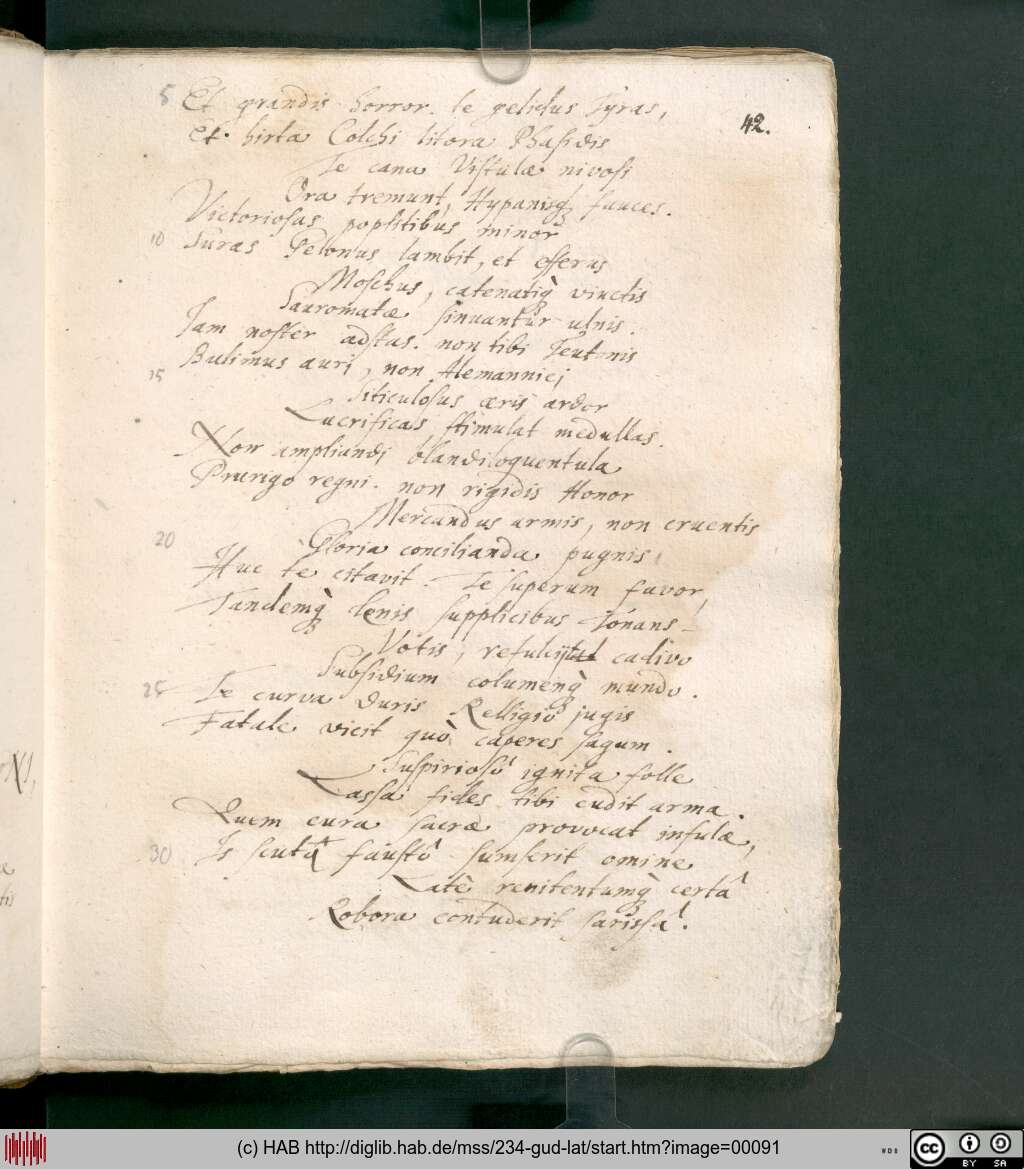 42.
5 Et grandis horror. te gelidus Tyras,
Et hirta Colchi litora Phasidis
Te cana Vistulæ nivosi
Ora tremunt, Hypanisq fauces.
Victoriosas poplitibus minor
10 Suras Gelonus lambit, et efferus
Moschus, catenatiq vinctis
Sauromatæ sinuantur ulnis.
Iam noster adstas. non tibi Teutonis
Bulimus auri, non Alemannici
15 Siticulosus æris ardor
Lucrificas stimulat medullas.
Non ampliandi blandiloquentula
Prurigo regni. non rigidis Honor
Mercandus armis, non cruentis
20 Gloria concilianda pugnis,
Huc te citavit. Te superum favor,
Tandemq lenis supplicibus Tonans
Votis, refulsit cadivo
Subsidium columenq mundo.
25 Te curva duris Relligio jugis
Fatale vicit quò caperes sagum.
Suspiriosô ignita folle
Lassa fides tibi cudit arma.
Quem cura sacræ provocat infulæ,
30 Is scuta faustô sumserit omine
Latè renitentumq certâ
Robora contuderit sarissâ.
(c) HAB http://diglib.hab.de/mss/234-gud-lat/start.htm?image=00091
WDB
cc BY SA